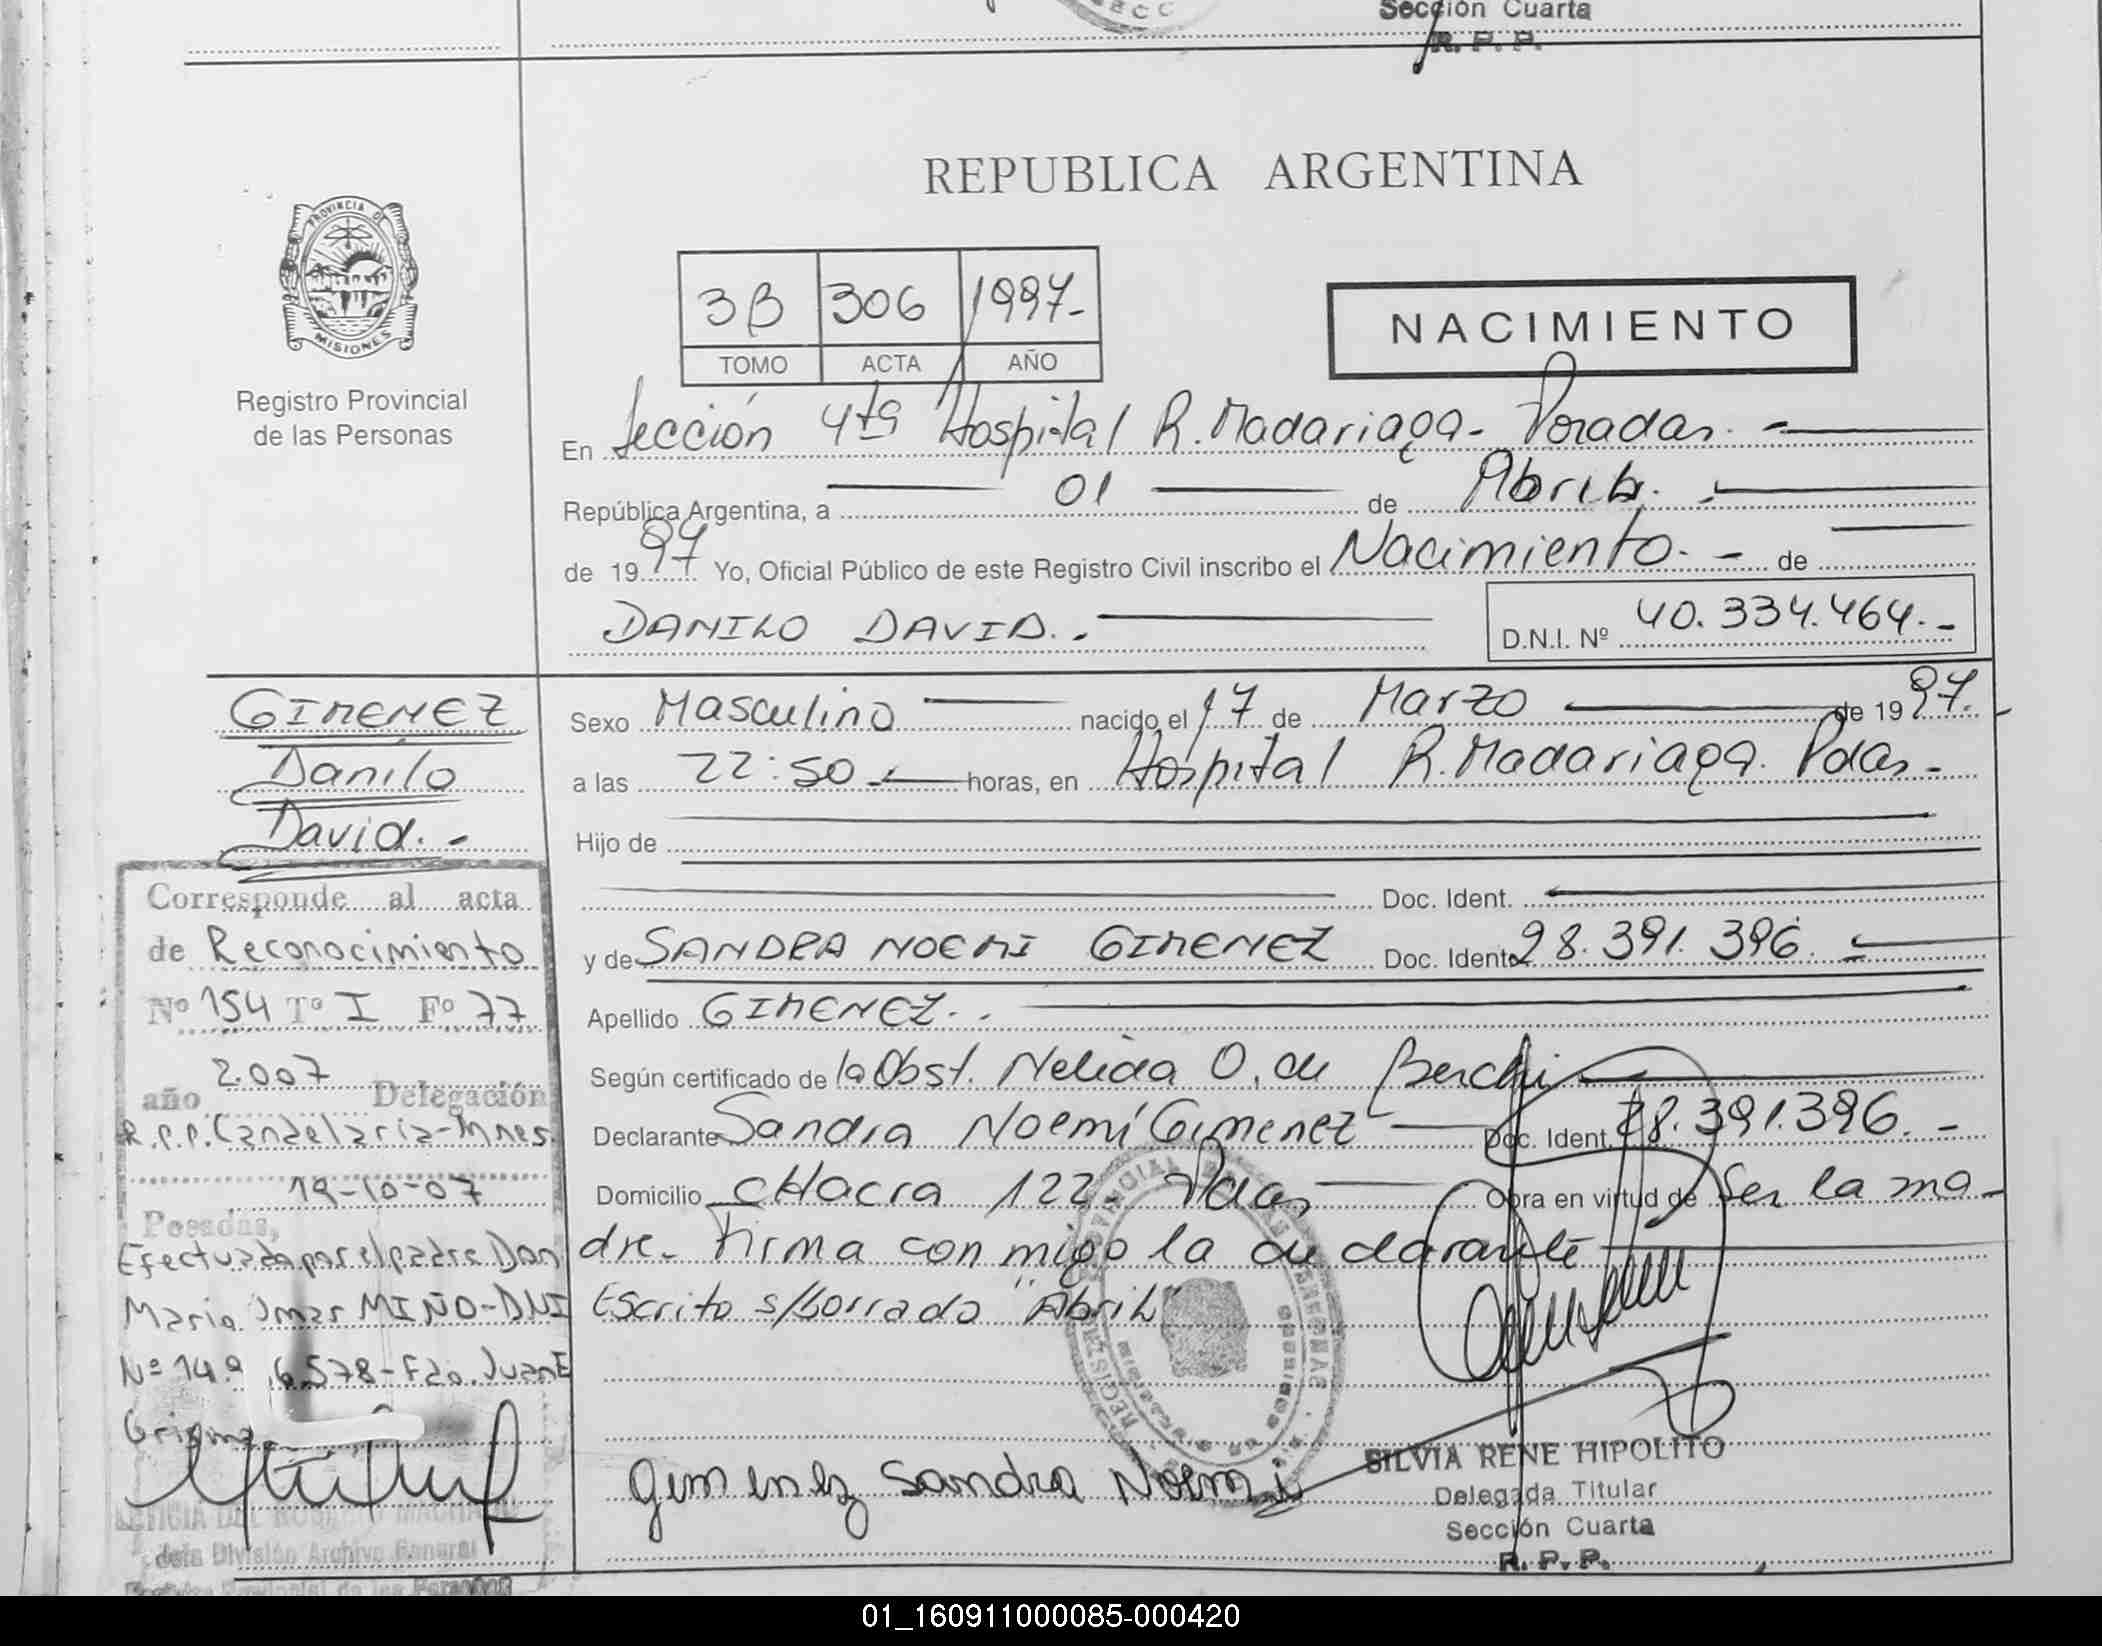 Sección Cuarta
R. P. P.
REPUBLICA ARGENTINA
PROVINCIA DE
MISIONES
Registro Provincial
de las Personas
3B 306 1997.-
TOMO ACTA AÑO
NACIMIENTO
En Sección 4ta Hospital R. Madariaga - Posadas. -
República Argentina, a 01 de Abril. -
de 1997 Yo, Oficial Público de este Registro Civil inscribo el Nacimiento. - de
DANILO DAVID. - D.N.I. Nº 40.334.464. -
GIMENEZ
Danilo
David. -
Sexo Masculino nacido el 17 de Marzo de 1997.
a las 22:50 horas, en Hospital R. Madariaga. Pdas. -
Hijo de
Doc. Ident.
y de SANDRA NOEMI GIMENEZ Doc. Ident. 28.391.396. -
Apellido GIMENEZ. -
Según certificado de la Obst. Nelida O. de Berchi
Declarante Sandra Noemí Gimenez Doc. Ident. 28.391.396. -
Domicilio CHacra 122 - Pdas, Obra en virtud de Ser la ma-
dre. Firma conmigo la de clarante
Escrito s/borrado "Abril"
Corresponde al acta
de Reconocimiento
Nº 154 Tº I Fº 77
año 2.007 Delegación
R.P.P. Candelaria - Mnes.
19-10-07
Posadas,
Efectuado por el padre Don
Mario Omar MIÑO - DNI
Nº 14. 6.578 - Fdo. Juan E
Gimenez Sandra Noemi
SILVIA RENE HIPOLITO
Delegada Titular
Sección Cuarta
R. P. P.
de la División Archivo General
Registro Provincial de las Personas
01_160911000085-000420